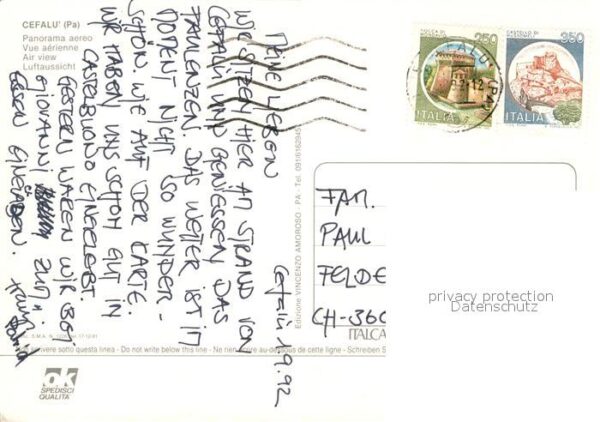 CEFALU' (Pa)
Panorama aereo
Vue aérienne
Air view
Luftaussicht
Cefalù 1.9.92
MEINE LIEBEN
WIR SITZEN HIER AM STRAND VON
CEFALÙ UND GENIESSEN DAS
FAULENZEN. DAS WETTER IST IM
MOMENT NICHT SO WUNDER-
SCHÖN. WIE AUF DER KARTE.
WIR HABEN UNS SCHON GUT IN
CASTELBUONO EINGELEBT.
GESTERN WAREN WIR BEI
GIOVANNI ZUM
ESSEN EINGELADEN.
Edizione VINCENZO AMOROSO - PA - Tel. 091/6162945
250
ITALIA
350
ITALIA
CEFALU'
FAM.
PAUL
FELDE
CH-360
privacy protection
Datenschutz
ITALCA
sotto questa linea - Do not write below this line - Ne rien écrire au-dessous de cette ligne - Schreiben S
ok
SPEDISCI
QUALITÀ